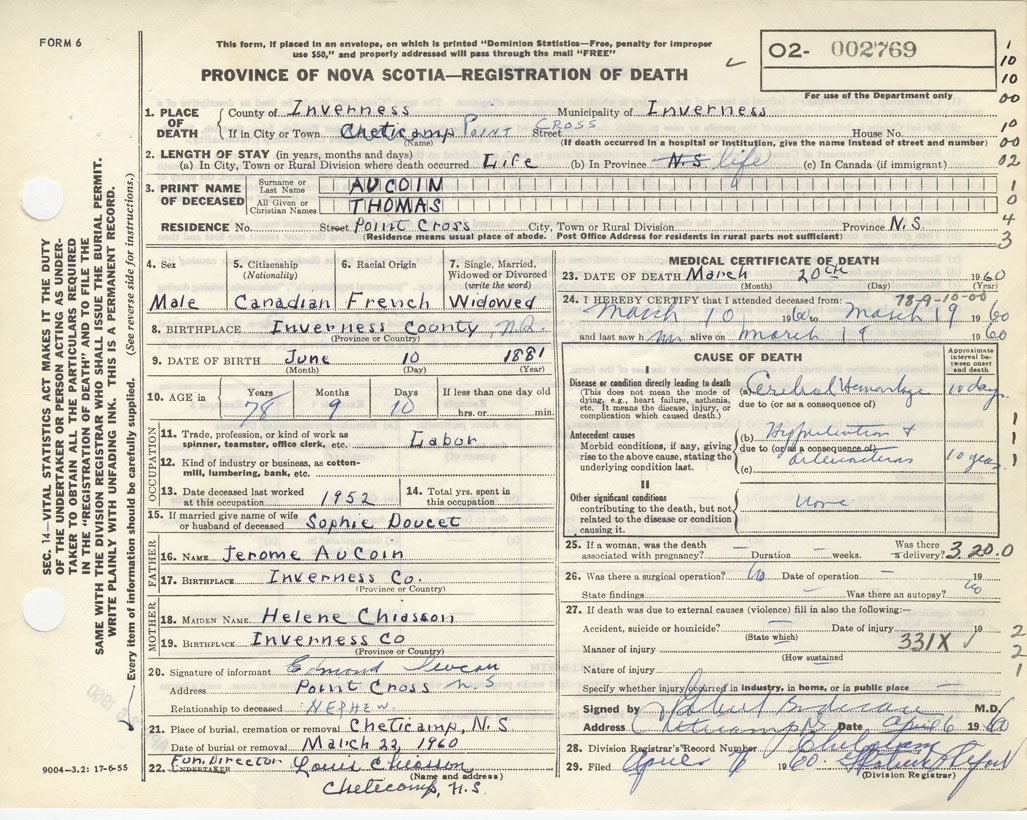 FORM 6
This form, if placed in an envelope, on which is printed "Dominion Statistics—Free, penalty for improper
use $50," and properly addressed will pass through the mail "FREE"
O2- 002769
For use of the Department only
PROVINCE OF NOVA SCOTIA—REGISTRATION OF DEATH
1
10
10
00
10
00
02
1
0
4
3
1. PLACE OF DEATH
County of Inverness Municipality of Inverness
If in City or Town Cheticamp Point Cross Street House No.
(Name) (If death occurred in a hospital or institution, give the name instead of street and number)
2. LENGTH OF STAY (in years, months and days)
(a) In City, Town or Rural Division where death occurred Life (b) In Province N.S life (c) In Canada (if immigrant)
3. PRINT NAME OF DECEASED
Surname or Last Name AUCOIN
All Given or Christian Names THOMAS
RESIDENCE No. Street Point Cross City, Town or Rural Division Province N.S.
(Residence means usual place of abode. Post Office Address for residents in rural parts not sufficient)
4. Sex Male
5. Citizenship (Nationality) Canadian
6. Racial Origin French
7. Single, Married, Widowed or Divorced (write the word) Widowed
8. BIRTHPLACE Inverness County N.S.
(Province or Country)
9. DATE OF BIRTH June 10 1881
(Month) (Day) (Year)
10. AGE in Years 78 Months 9 Days 10 If less than one day old
hrs. or min.
OCCUPATION
11. Trade, profession, or kind of work as
spinner, teamster, office clerk, etc. Labor
12. Kind of industry or business, as cotton-
mill, lumbering, bank, etc.
13. Date deceased last worked
at this occupation 1952
14. Total yrs. spent in
this occupation
15. If married give name of wife
or husband of deceased Sophie Doucet
FATHER
16. NAME Jerome AuCoin
17. BIRTHPLACE Inverness Co.
(Province or Country)
MOTHER
18. MAIDEN NAME Helene Chiasson
19. BIRTHPLACE Inverness Co
(Province or Country)
20. Signature of informant Edmond Aucoin
Address Point Cross N.S
Relationship to deceased NEPHEW
21. Place of burial, cremation or removal Cheticamp, N.S
Date of burial or removal March 22, 1960
22. Fun. Director UNDERTAKER Louis Chiasson
(Name and address)
Chetecamp, N.S.
9004-3.2: 17-6-55
MEDICAL CERTIFICATE OF DEATH
23. DATE OF DEATH March 20th 1960
(Month) (Day) (Year)
78-9-10-00
24. I HEREBY CERTIFY that I attended deceased from:
March 10 1960 to March 19 1960
and last saw him alive on March 19 1960
CAUSE OF DEATH
Approximate interval between onset and death
I
Disease or condition directly leading to death
(This does not mean the mode of
dying, e.g., heart failure, asthenia,
etc. It means the disease, injury, or
complication which caused death.)
(a) Cerebral Hemorrhage 10 days
due to (or as a consequence of)
Antecedent causes
Morbid conditions, if any, giving
rise to the above cause, stating the
underlying condition last.
(b) Hypertension &
due to (or as a consequence of)
(c) 10 years
1
1
1
II
Other significant conditions
contributing to the death, but not
related to the disease or condition
causing it.
None
25. If a woman, was the death
associated with pregnancy? — Duration — weeks. Was there
a delivery? 320.0
26. Was there a surgical operation? No Date of operation — 19
State findings Was there an autopsy? No
27. If death was due to external causes (violence) fill in also the following:—
Accident, suicide or homicide? Date of injury 19
(State which)
Manner of injury 331X
(How sustained)
Nature of injury
2
2
1
Specify whether injury occurred in industry, in home, or in public place —
Signed by M.D.
Address Cheticamp N.S Date April 6 1960
28. Division Registrar's Record Number
29. Filed April 1960
(Division Registrar)
SEC. 14—VITAL STATISTICS ACT MAKES IT THE DUTY
OF THE UNDERTAKER OR PERSON ACTING AS UNDER-
TAKER TO OBTAIN ALL THE PARTICULARS REQUIRED
IN THE "REGISTRATION OF DEATH" AND FILE THE
SAME WITH THE DIVISION REGISTRAR WHO SHALL ISSUE THE BURIAL PERMIT.
WRITE PLAINLY WITH UNFADING INK. THIS IS A PERMANENT RECORD.
Every item of information should be carefully supplied. (See reverse side for instructions.)